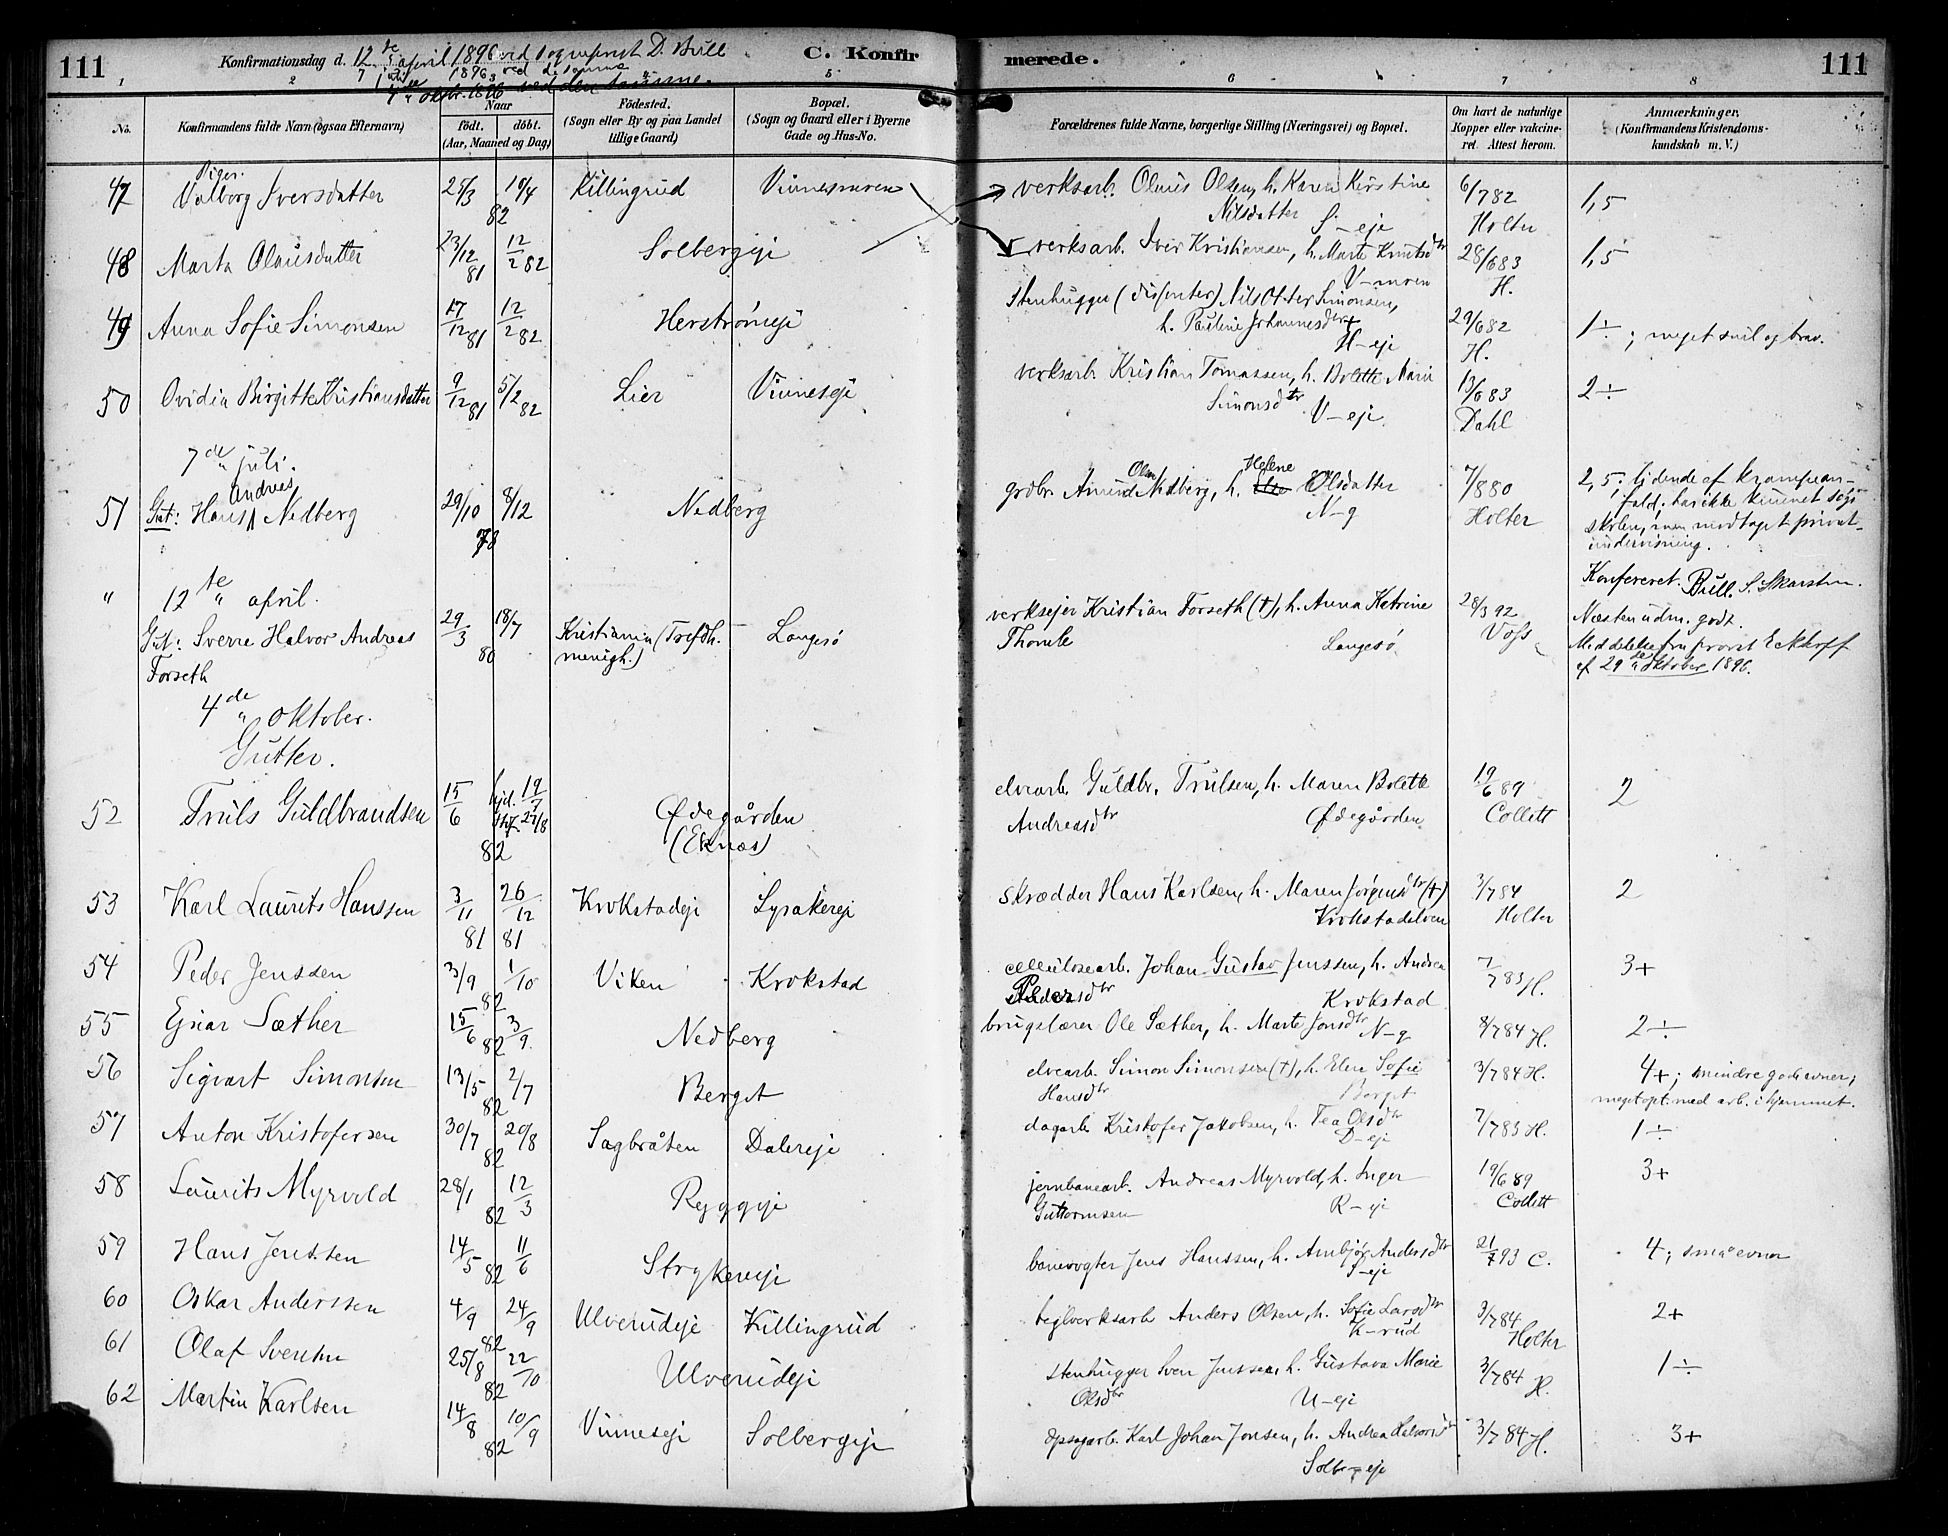 111
Konfirmationsdag d. 12te april 1896 ved sogneprest D. Bull
7de juli 1896, ved desamme
4de oktbr. 1896 ved den samme.
C. Konfirmerede.
111
1 2 3 4 5 6 7 8
No.
Konfirmandens fulde Navn (ogsaa Efternavn)
Naar
født. døbt.
(Aar, Maaned og Dag)
Fødested.
(Sogn eller By og paa Landet
tillige Gaard)
Bopæl.
(Sogn og Gaard eller i Byerne
Gade og Hus-No.
Forældrenes fulde Navne, borgerlige Stilling (Næringsvei) og Bopæl.
Om havt de naturlige
Kopper eller vakcine-
ret. Attest herom.
Anmærkninger.
(Konfirmandens Kristendoms-
kundskab m. V.)
Piger.
47 Valborg Iversdatter 25/3 10/4 82 Killingrud Vinnesmoren verksarb. Olaus Olsen, h. Karen Kirstine Nilsdatter S-eje 6/7 82 Holter 1,5
48 Marta Olausdatter 23/12 81 12/2 82 Solbergeje verksarb. Iver Kristiansen, h. Marte Knutsdtr V-moren 28/6 83 H. 1,5
49 Anna Sofie Simonsen 17/12 81 12/2 82 Herstrømeje Stenhugger (dissenter) Nils Otter Simonsen, h. Pauline Johannesdtr H-eje 29/6 82 H. 1÷; meget snil og brav.
50 Ovidia Birgitte Kristiansdatter 9/12 81 5/2 82 Lier Vinneseje verksarb. Kristian Tomassen, h. Bolette Marie Simonsdtr V-eje. 13/6 83 Dahl 2÷
7de juli.
51 Gut: Hans Andreas Nedberg 29/10 8/12 78 Nedberg grdbr. Amund Olsen Nedberg, h. Helene Olsdatter N-g 7/8 80 Holter 2,5; lidende af krampean-
fald; har ikke kunnet søge
skolen, men modtaget privat-
undervisning.
Konfereret. Bull. S. Skarsten.
" 12te april.
Gut: Sverre Halvor Andreas Forseth 29/3 18/7 80 Kristiania (Trefdh. menigh.) Langesø verksejer Kristian Forseth (†), h. Anna Katrine Thomle Langesø 28/3 92 Voss Næsten udm. godt.
Meddelelse fra provst Eckhoff
af 29de oktober 1896.
4de oktober.
Gutter.
52 Truls Guldbrandsen 15/6 hjd. 19/7 stf. 27/8 82 Ødegården (Eknes) elvearb. Guldbr. Trulsen, h. Maren Bolette Andreasdtr Ødegården 19/6 89 Collett 2
53 Karl Laurits Hanssen 3/11 81 26/12 81 Krokstadeje Lysakereje skrædder Hans Karlsen, h. Maren Jørgensdtr (†) Krokstadelven 3/7 84 Holter 2
54 Peder Jenssen 3/9 1/10 82 Viken Krokstad cellulosearb. Johan Gustav Jenssen, h. Andrea Pedersdtr Krokstad 7/7 83 H. 3+
55 Ejnar Sæther 15/6 3/9 82 Nedberg brugslærer Ole Sæther, h. Marte Jonsdtr N-g 8/7 84 H. 2÷
56 Sigvart Simonsen 13/5 2/7 82 Berget elvearb. Simon Simonsen (†), h. Eline Sofie Hansdtr Berget 3/7 84 H. 4+; mindre gode evner;
meget opt. med arb. i hjemmet.
57 Anton Kristofersen 30/7 20/8 82 Sagbråten Dalereje dagarb. Kristofer Jakobsen, h. Tea Olsdtr D-eje 7/7 83 H. 1÷
58 Laurits Myrvold 28/1 12/3 82 Ryggeje jernbanearb. Andreas Myrvold, h. Inger Guttormsen R-eje 19/6 89 Collett 3+
59 Hans Jenssen 14/5 11/6 82 Strykeneje banevogter Jens Hanssen, h. Ambjør Andersdtr S-eje 21/7 93 C. 4; små evner
60 Oskar Anderssen 4/9 24/9 82 Ulverudeje Killingrud teglverksarb. Anders Olsen, h. Sofie Larsdtr K-rud 3/7 84 Holter 2+
61 Olaf Svensen 25/8 22/10 82 Ulverudeje stenhugger Sven Jenssen, h. Gustava Marie Olsdtr U-eje 3/7 84 H. 1÷
62 Martin Karlsen 14/8 10/9 82 Vinneseje Solbergeje opsagarb. Karl Johan Jonsen, h. Andrea Halvorsdtr Solb-eje 3/7 84 H. 3+